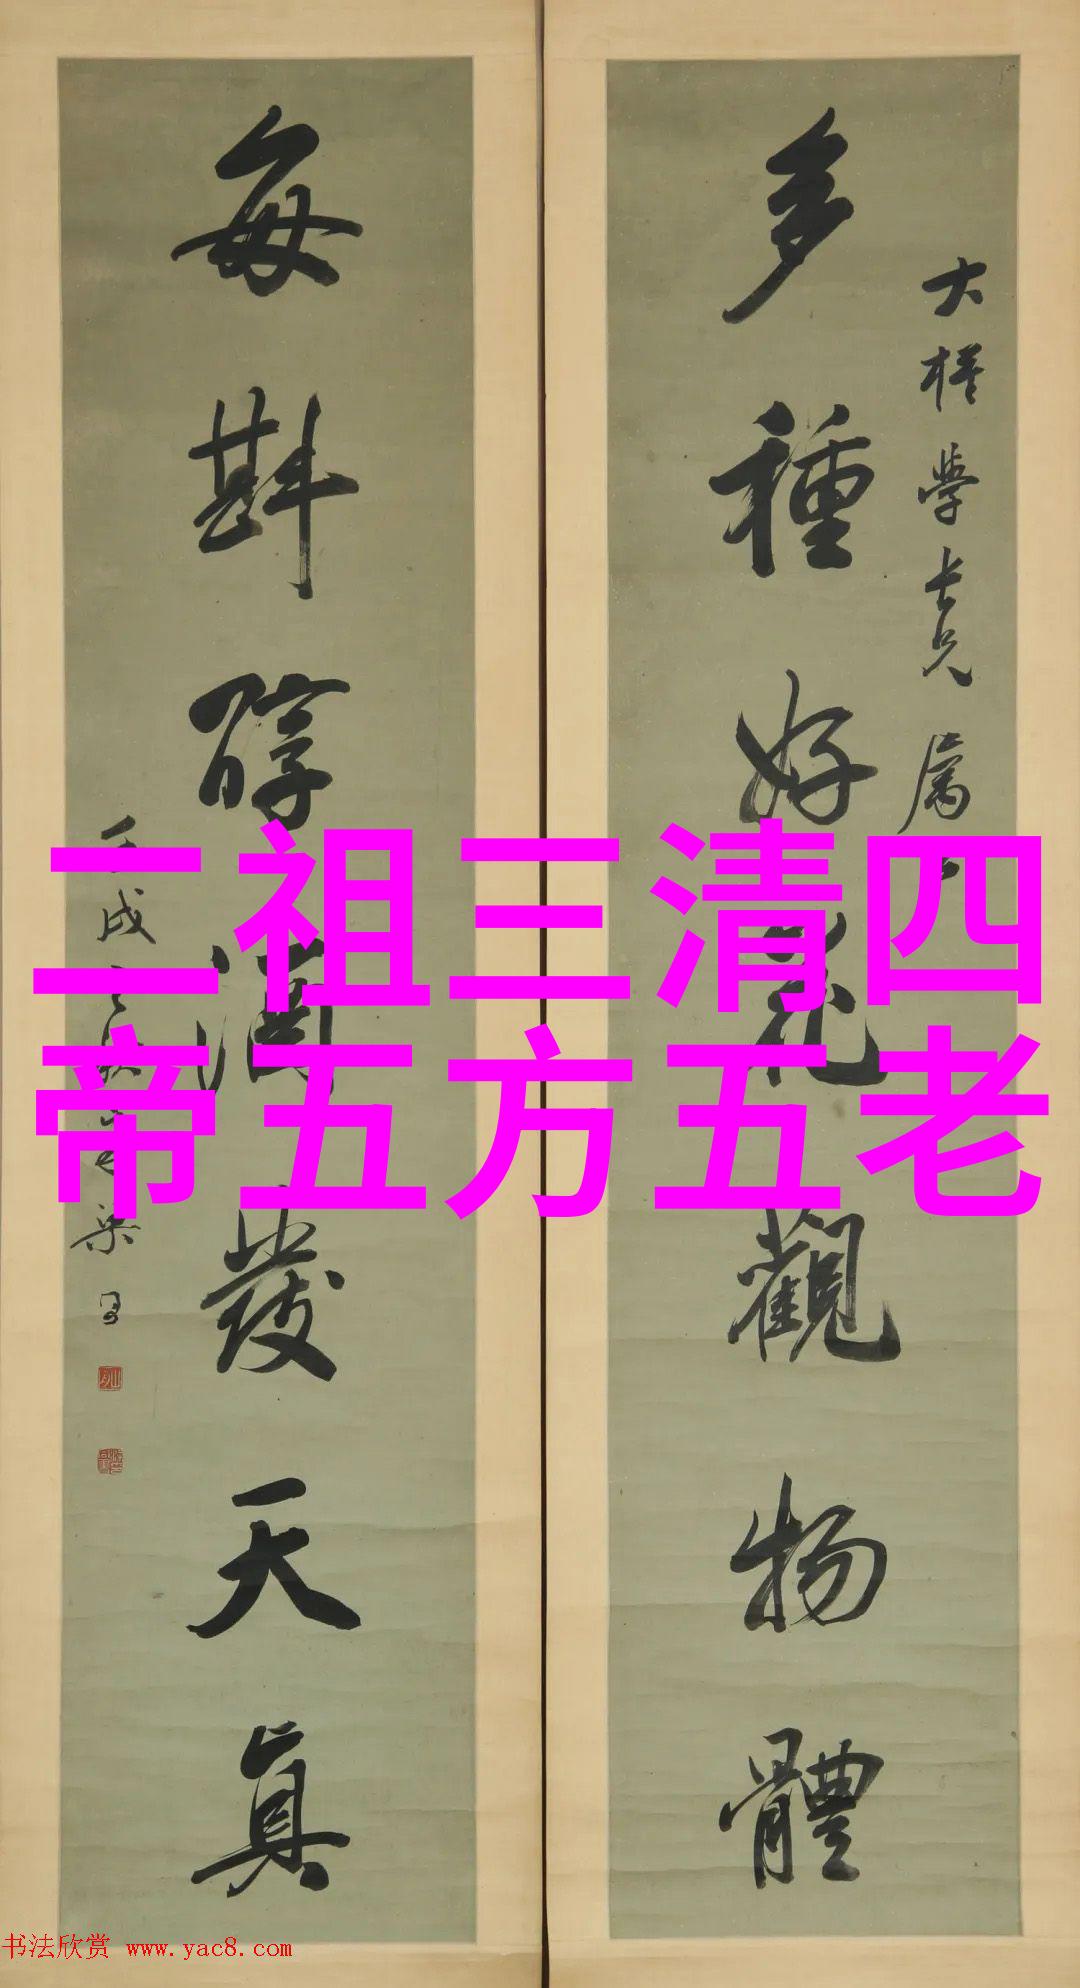 大
學長兄 屬
多種好花觀物體
二祖三清四
帝五方五老
每斟醇酒發天真
壬戌
书法欣赏 www.yac8.com